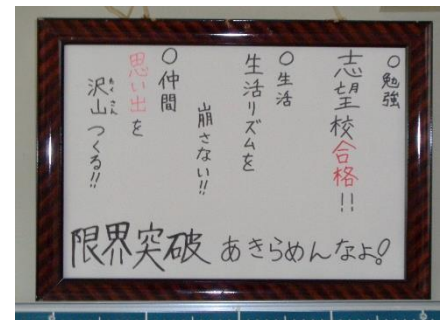 ○勉強
志望校合格!!
○生活
生活リズムを
崩さない!!
○仲間
思い出を
沢山つくる!!
たくさん
限界突破 あきらめんなよ!